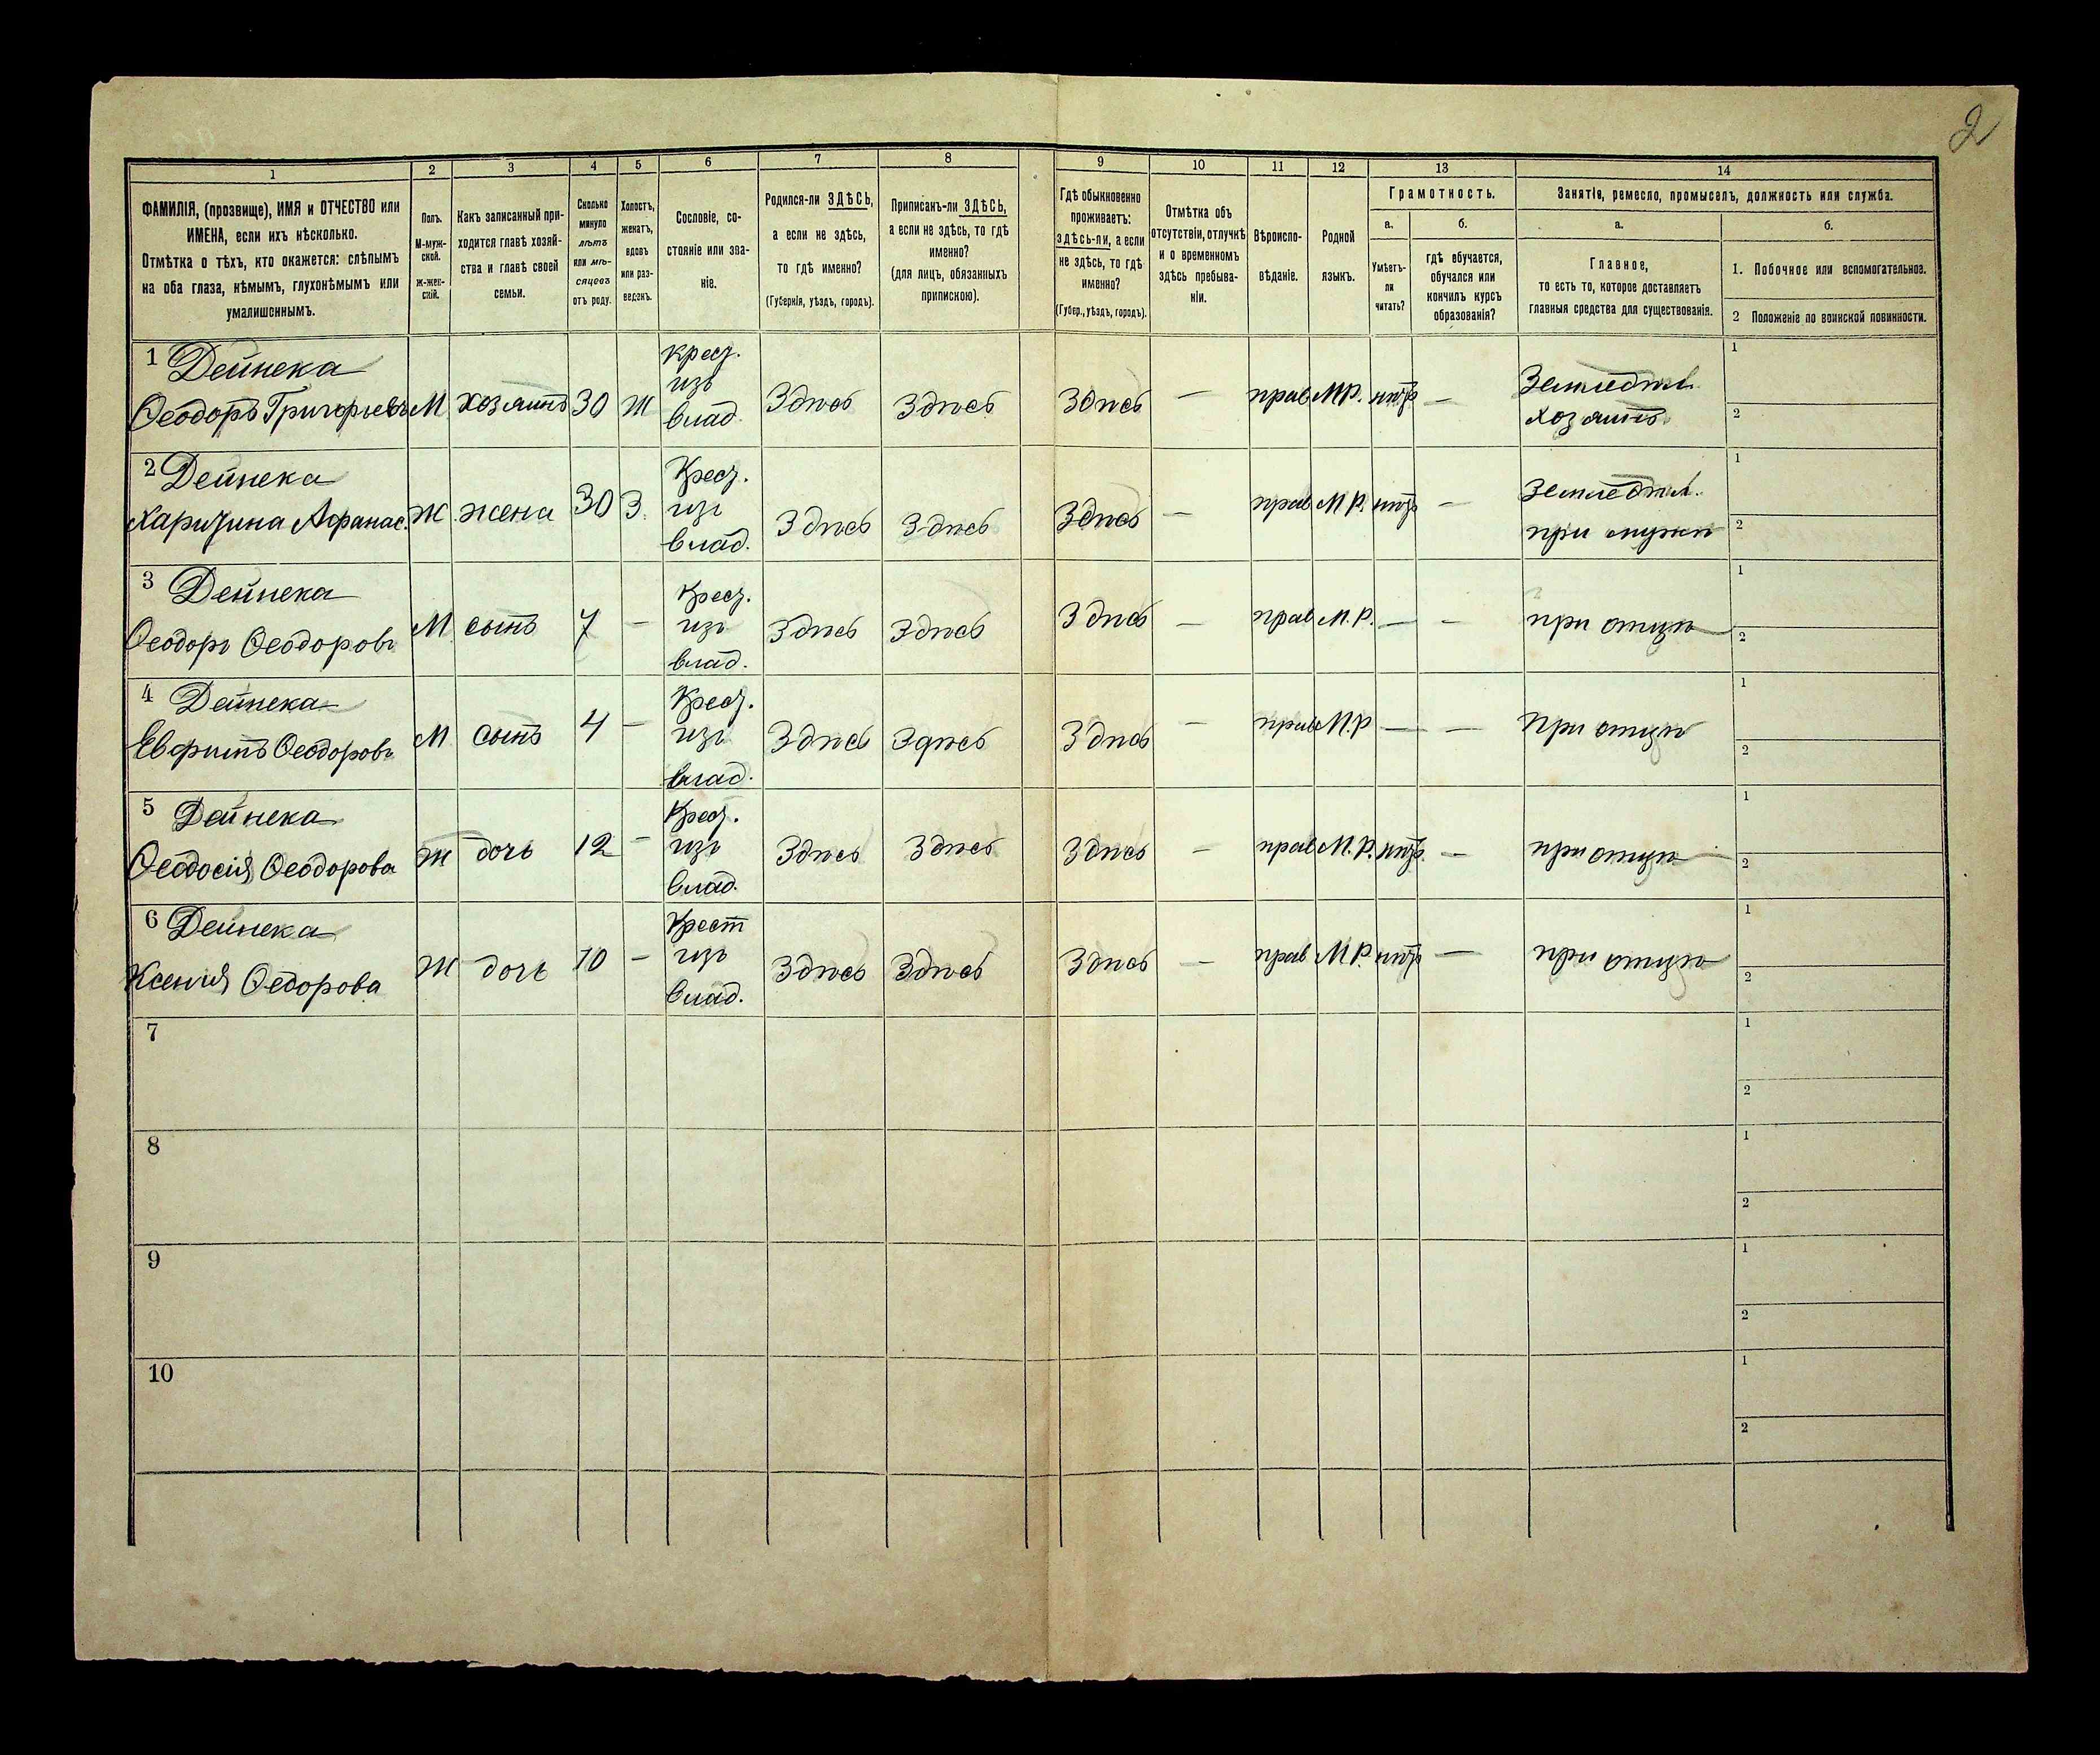 2
1
2
3
4
5
6
7
8
9
10
11
12
13
14
ФАМИЛІЯ, (прозвище), ИМЯ и ОТЧЕСТВО или
ИМЕНА, если ихъ нѣсколько.
Отмѣтка о тѣхъ, кто окажется: слѣпымъ
на оба глаза, нѣмымъ, глухонѣмымъ или
умалишеннымъ.
Полъ.
М-муж-
ской.
Ж-жен-
скій.
Какъ записанный при-
ходится главѣ хозяй-
ства и главѣ своей
семьи.
Сколько
минуло
лѣтъ
или мѣ-
сяцевъ
отъ роду.
Холостъ,
женатъ,
вдовъ
или раз-
веденъ.
Сословіе, со-
стояніе или зва-
ніе.
Родился-ли ЗДѢСЬ,
а если не здѣсь,
то гдѣ именно?
(Губернія, уѣздъ, городъ).
Приписанъ-ли ЗДѢСЬ,
а если не здѣсь, то гдѣ
именно?
(для лицъ, обязанныхъ
припискою).
Гдѣ обыкновенно
проживаетъ:
здѣсь-ли, а если
не здѣсь, то гдѣ
именно?
(Губер., уѣздъ, городъ).
Отмѣтка объ
отсутствіи, отлучкѣ
и о временномъ
здѣсь пребыва-
ніи.
Вѣроиспо-
вѣданіе.
Родной
языкъ.
Грамотность.
а.
Умѣетъ-
ли
читать?
б.
гдѣ обучается,
обучался или
кончилъ курсъ
образованія?
Занятія, ремесло, промыселъ, должность или служба.
а.
Главное,
то есть то, которое доставляетъ
главныя средства для существованія.
б.
1. Побочное или вспомогательное.
2 Положеніе по воинской повинности.
1 Дейнека
Ѳеодоръ Григорьевъ М хозяинъ 30 Ж Крест. изъ влад. Здѣсь Здѣсь Здѣсь — прав М.Р. нѣтъ — Земледѣл. хозяинъ 1 2
2 Дейнека
Харитина Афанас. Ж жена 30 З. Крест. изъ влад. Здѣсь Здѣсь Здѣсь — прав М.Р. нѣтъ — Земледѣл. при мужѣ 1 2
3 Дейнека
Ѳеодоръ Ѳеодоровъ М сынъ 7 — Крест. изъ влад. Здѣсь Здѣсь Здѣсь — прав М.Р. — — при отцѣ 1 2
4 Дейнека
Евфимъ Ѳеодоровъ М сынъ 4 — Крест. изъ влад. Здѣсь Здѣсь Здѣсь — прав М.Р — — При отцѣ 1 2
5 Дейнека
Ѳеодосія Ѳеодорова Ж дочь 12 — Крест. изъ влад. Здѣсь Здѣсь Здѣсь — прав М.Р. нѣтъ. — при отцѣ 1 2
6 Дейнека
Ксенія Ѳедорова Ж дочь 10 — Крест изъ влад. Здѣсь Здѣсь Здѣсь — прав М.Р. нѣтъ — при отцѣ 1 2
7 1 2
8 1 2
9 1 2
10 1 2